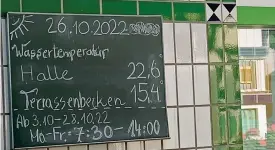 26.10.2022
Wassertemperatur
Halle 22,6
Terrassenbecken 15,4
Ab 3.10-28.10.22
Mo-Fr.: 7:30-14:00